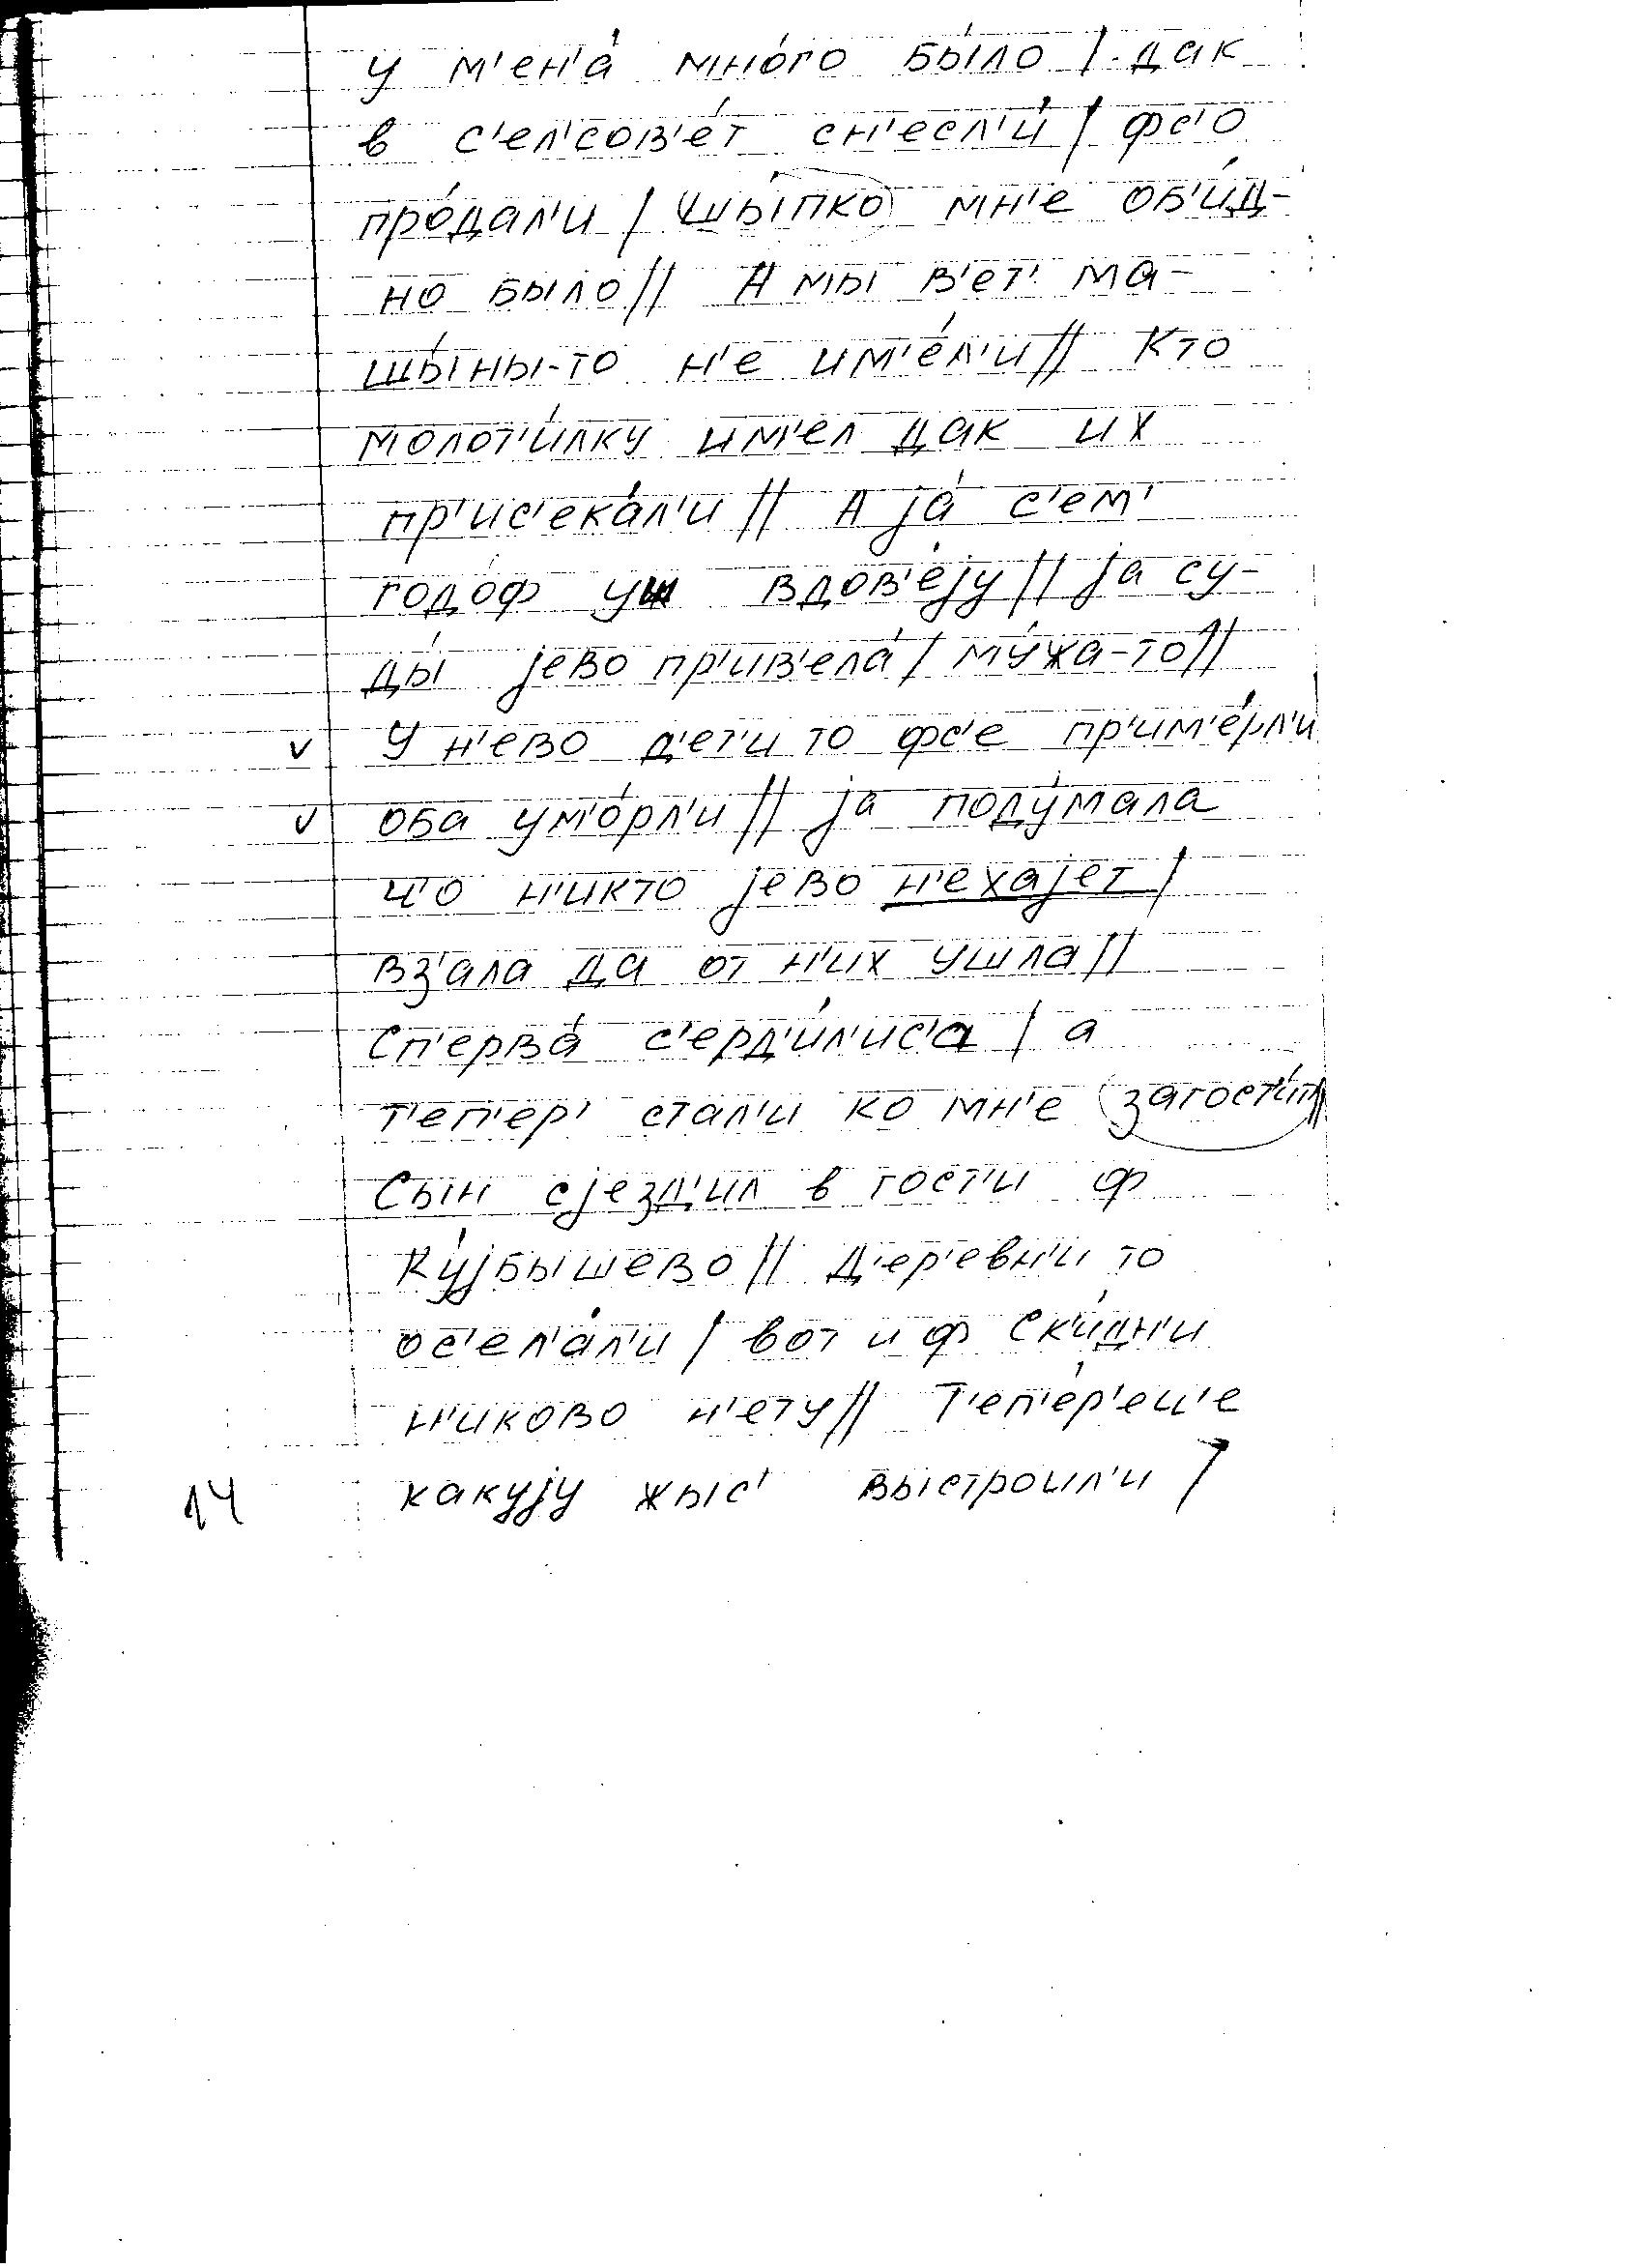 у м'ен'а́ мно́го бы́ло / дак
в с'ел'сов'е́т сн'есл'и́ / фс'о
про́дал'и / шы́пко мн'е об'и́д-
но было // А мы в'ет' ма-
шы́ны-то н'е им'е́л'и // Кто
молот'и́лку им'ел дак их
пр'ис'ека́л'и // А jа́ с'ем'
годо́ф уш вдов'е́jу // jа су-
ды́ jево пр'ив'ела́ / му́жа-то //
v У н'ево д'ет'и то фс'е пр'им'е́рл'и
v оба ум'о́рл'и // jа поду́мала
ч'о н'икто jево н'ехаjет /
вз'ала да от н'их ушла //
Сп'ерва́ с'ерд'и́л'ис'а / а
т'еп'ер' стал'и ко мн'е загост'и́т' //
Сын сjезд'ил в гост'и ф
Ку́jбышево // Д'ер'евн'и то
ос'ел'а́л'и / вот и ф Ск'и́дн'и
н'иково н'ету // Т'еп'е́р'еш'е
какуjу жыс' выстроил'и /
14